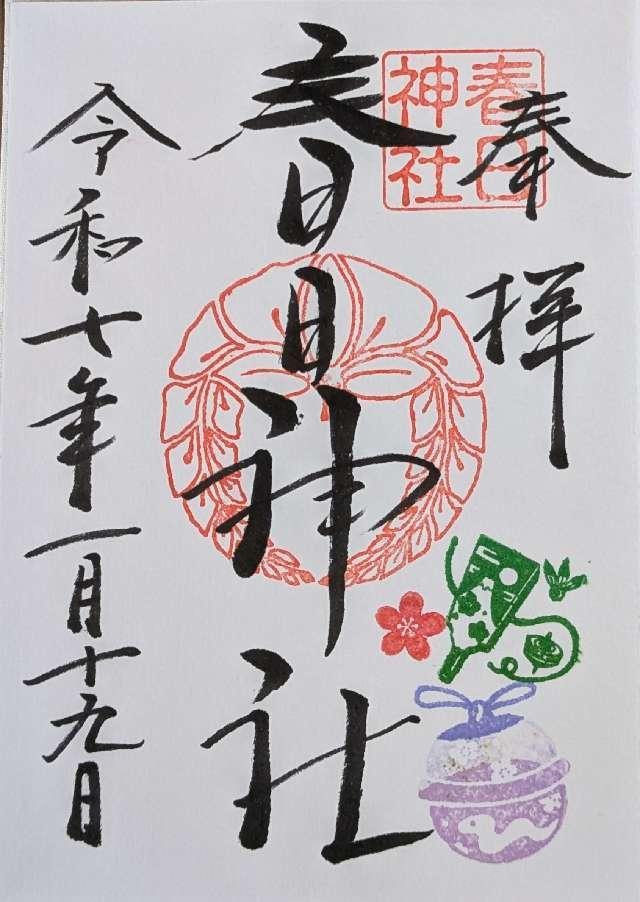 奉拝
春日神社
春日神社
令和七年一月十九日